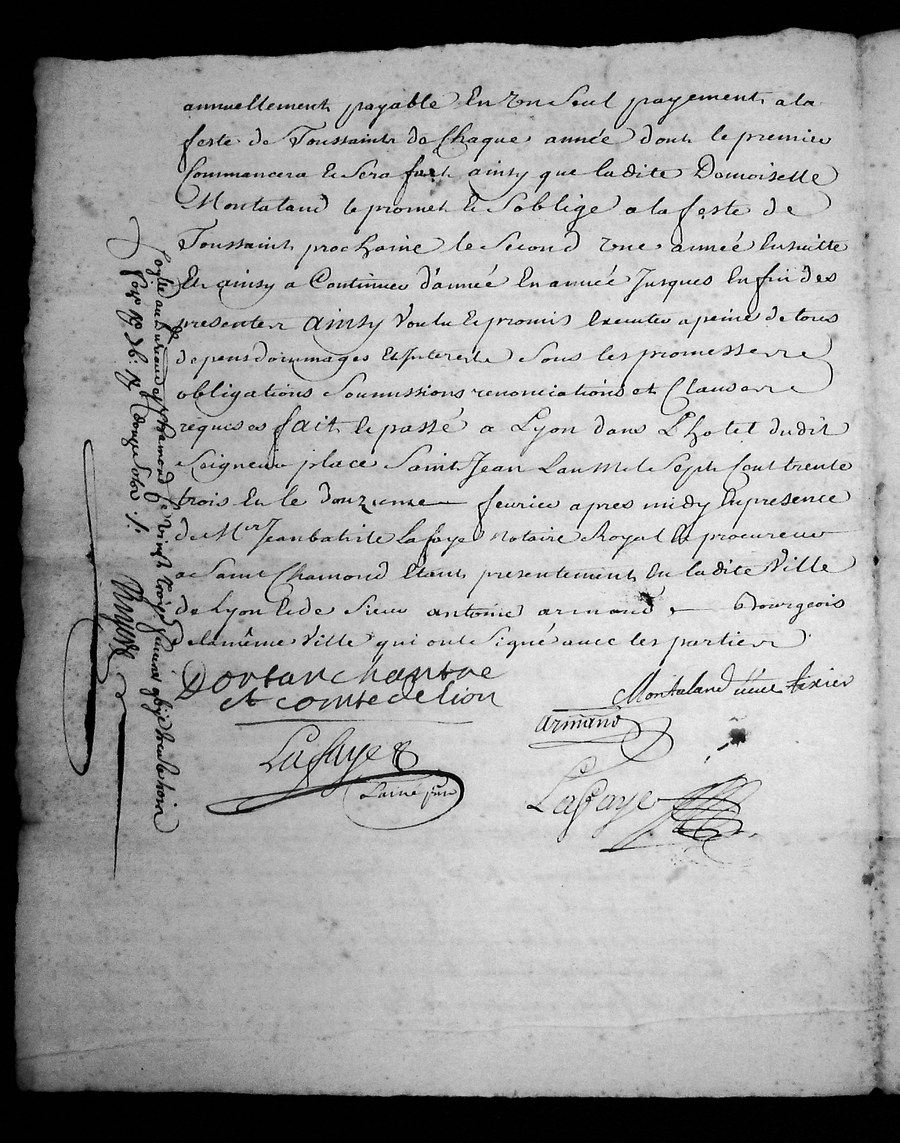 annuellement payable En Un Seul payement a la
feste de Toussaint de Chaque année dont le premier
Commancera Et Sera fait ainsy que ladite Damoiselle
Montaland le promet Et Soblige a la feste de
Toussaint prochaine le Second Une année Ensuitte
Et ainsy a Continuer d'année En année Jusques Enfin des
presentes Ainsy Voulu Et promis Executer a peine de tous
depens dommages Et Interests Sous les promesses
obligations Soumissions renonciations et Clauses
requises fait Et passé a Lyon dans L'hotel dudit
Seigneur place Saint Jean Lan Mil Sept Cent trente
trois Et le douzieme fevrier apres midy En presence
de Mer Jean batiste Lafaye Notaire Royal Et procureur
a Saint Chamond Etant presentement En ladite Ville
de Lyon Et de Sieur antoine armand Bourgeois
de la même Ville qui ont Signé avec les parties
Dortan Chantre
et comte de lion
Montaland
armand
Lafaye
Lafaye
au bureau de St Chamond le vingt trois